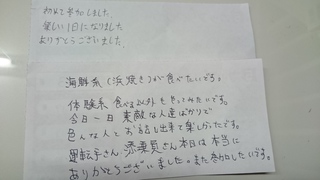 初めて参加しました
楽しい1日になりました
ありがとうございました。
海鮮系(浜焼き)が食べたいです。
体験系 食べる以外もやってみたいです。
今日一日 素敵な人達ばかりで
色んな人とお話し出来て楽しかったです。
運転手さん・添乗員さん本日は本当に
ありがとうございました。また参加したいです。